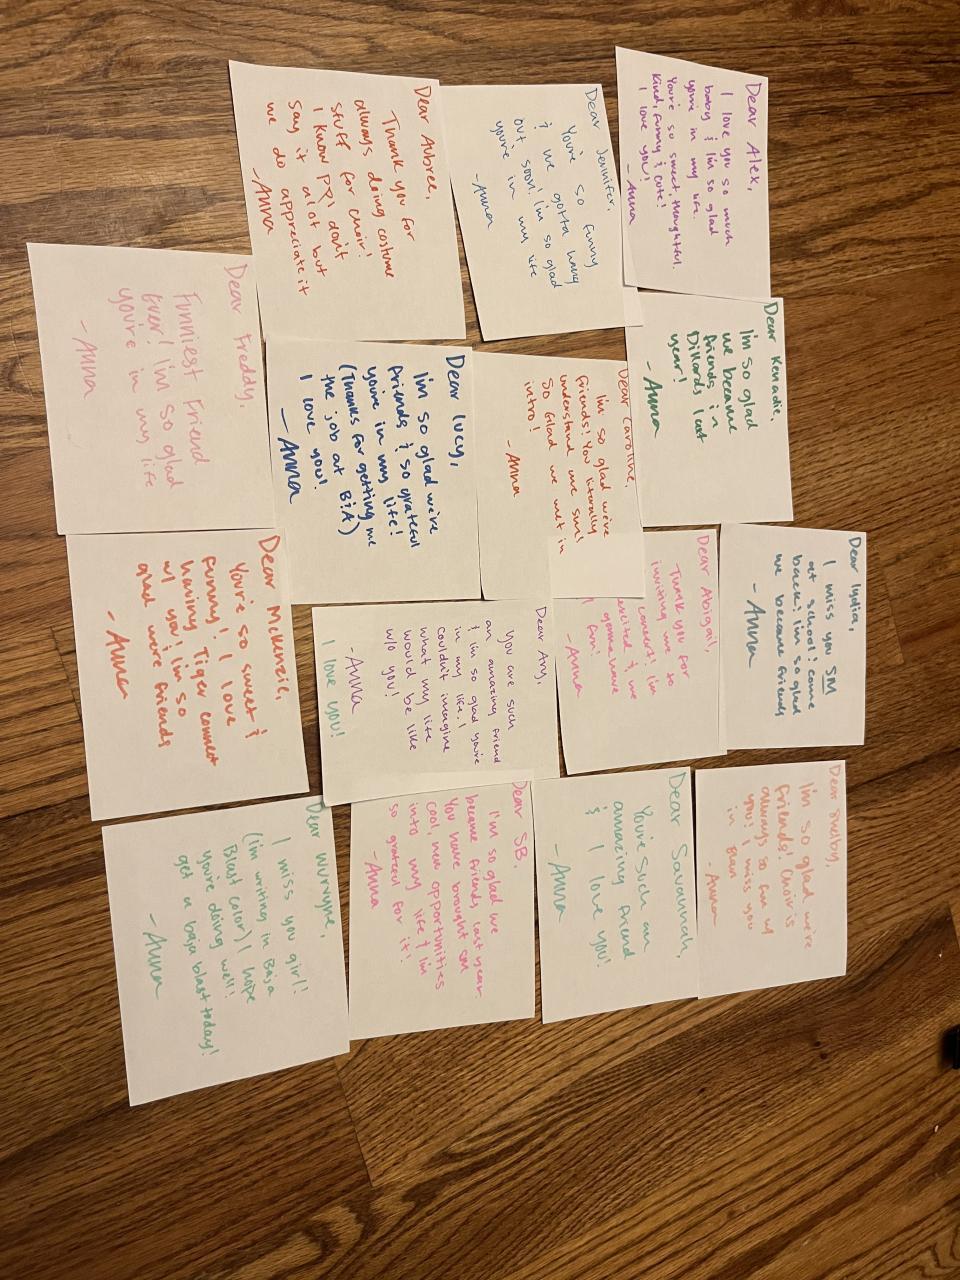 Dear Alex,
I love you so much
baby & I'm so glad
you're in my life.
You're so sweet, thoughtful,
kind, funny & cute!
I love you!
-Anna
Dear Kenadie,
I'm so glad
we became
friends in
Dillards last
year!
-Anna
Dear Lydia,
I miss you SM
at school! come
back! I'm so glad
we became friends
-Anna
Dear Shelby,
I'm so glad we're
friends! Choir is
always so fun w/
you! I miss you
in
-Anna
Dear Jennifer,
You're so funny
& we gotta hang
out soon! I'm so glad
you're in my life
-Anna
Dear Caroline,
I'm so glad we're
friends! You literally
understand me sm!
So Glad we met in
intro!
-Anna
Dear Abigail,
Thank you for
inviting me to
concert! I'm
excited & we
gonna have
fun!
-Anna
Dear Savannah,
You're such an
amazing friend
& I love you!
-Anna
Dear Aubree,
Thank you for
always doing costume
stuff for choir!
I know ppl don't
say it alot but
we do appreciate it
-Anna
Dear Lucy,
I'm so glad we're
friends & so grateful
you're in my life!
(Thanks for getting me
the job at BIA)
I love you!
-Anna
Dear Amy,
You are such
an amazing friend
& I'm so glad you're
in my life. I
couldn't imagine
what my life
would be like
w/o you!
-Anna
I love you!
Dear SB,
I'm so glad we
became friends last year.
You have brought sm
cool, new opportunities
into my life & I'm
so grateful for it!
-Anna
Dear Freddy,
Funniest Friend
Ever! I'm so glad
you're in my life
-Anna
Dear McKenzie,
You're so sweet &
funny! I love
having Tiger connect
w/ you! I'm so
glad we're friends
-Anna
Dear Wurryne,
I miss you girl!
(I'm writing in Baja
Blast color) I hope
you're doing well!
get a baja blast today!
-Anna